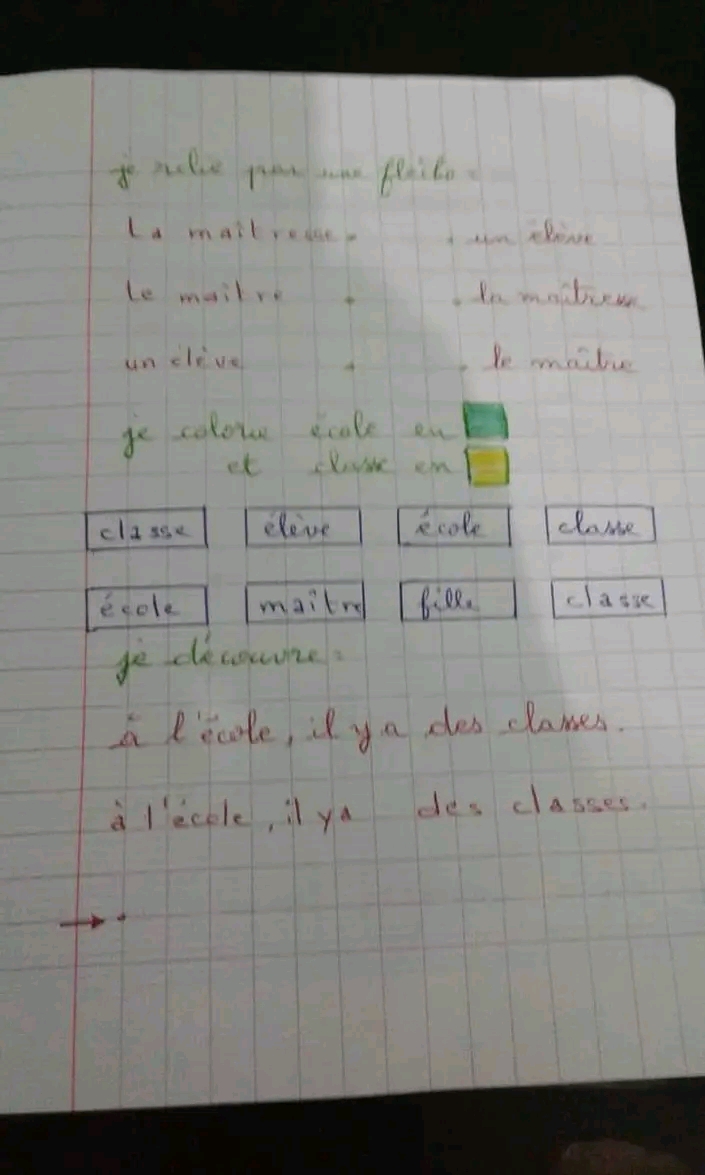 je relie par une flèche :
La maîtresse . . un élève
le maître . . la maîtresse
un élève . . le maître
je colorie école en
et classe en
classe élève école classe
école maître fille classe
je découvre :
à l'école, il y a des classes.
à l'école, il y a des classes.